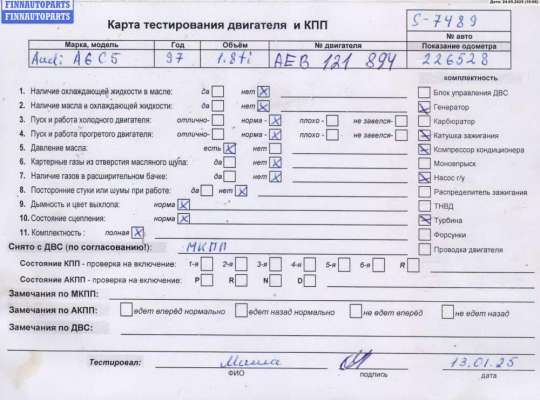 FINNAUTOPARTS
FINNAUTOPARTS
Карта тестирования двигателя и КПП
S-7489
№ авто
Марка, модель Год Объём № двигателя Показание одометра
Audi A6 C5 97 1.8ti AEB 121 894 226528
комплектность
1. Наличие охлаждающей жидкости в масле: да нет X
2. Наличие масла в охлаждающей жидкости: да нет X
3. Пуск и работа холодного двигателя: отлично- норма - X плохо - не завелся-
4. Пуск и работа прогретого двигателя: отлично- норма - X плохо - не завелся-
5. Давление масла: есть X нет
6. Картерные газы из отверстия масляного щупа: да нет X
7. Наличие газов в расширительном бачке: да нет X
8. Посторонние стуки или шумы при работе: да нет X
9. Дымность и цвет выхлопа: норма X
10. Состояние сцепления: норма X
11. Комплектность : полная X
Блок управления ДВС
X Генератор
Карбюратор
X Катушка зажигания
X Компрессор кондиционера
Моновпрыск
X Насос г/у
Распределитель зажигания
ТНВД
X Турбина
Форсунки
Проводка двигателя
Снято с ДВС (по согласованию!): МКПП
Состояние КПП - проверка на включение: 1-я 2-я 3-я 4-я 5-я 6-я R
Состояние АКПП - проверка на включение: P R N D
Замечания по МКПП:
Замечания по АКПП: едет вперёд нормально едет назад нормально не едет вперёд не едет назад
Замечания по ДВС:
Тестировал: Миша 13.01.25
ФИО подпись дата